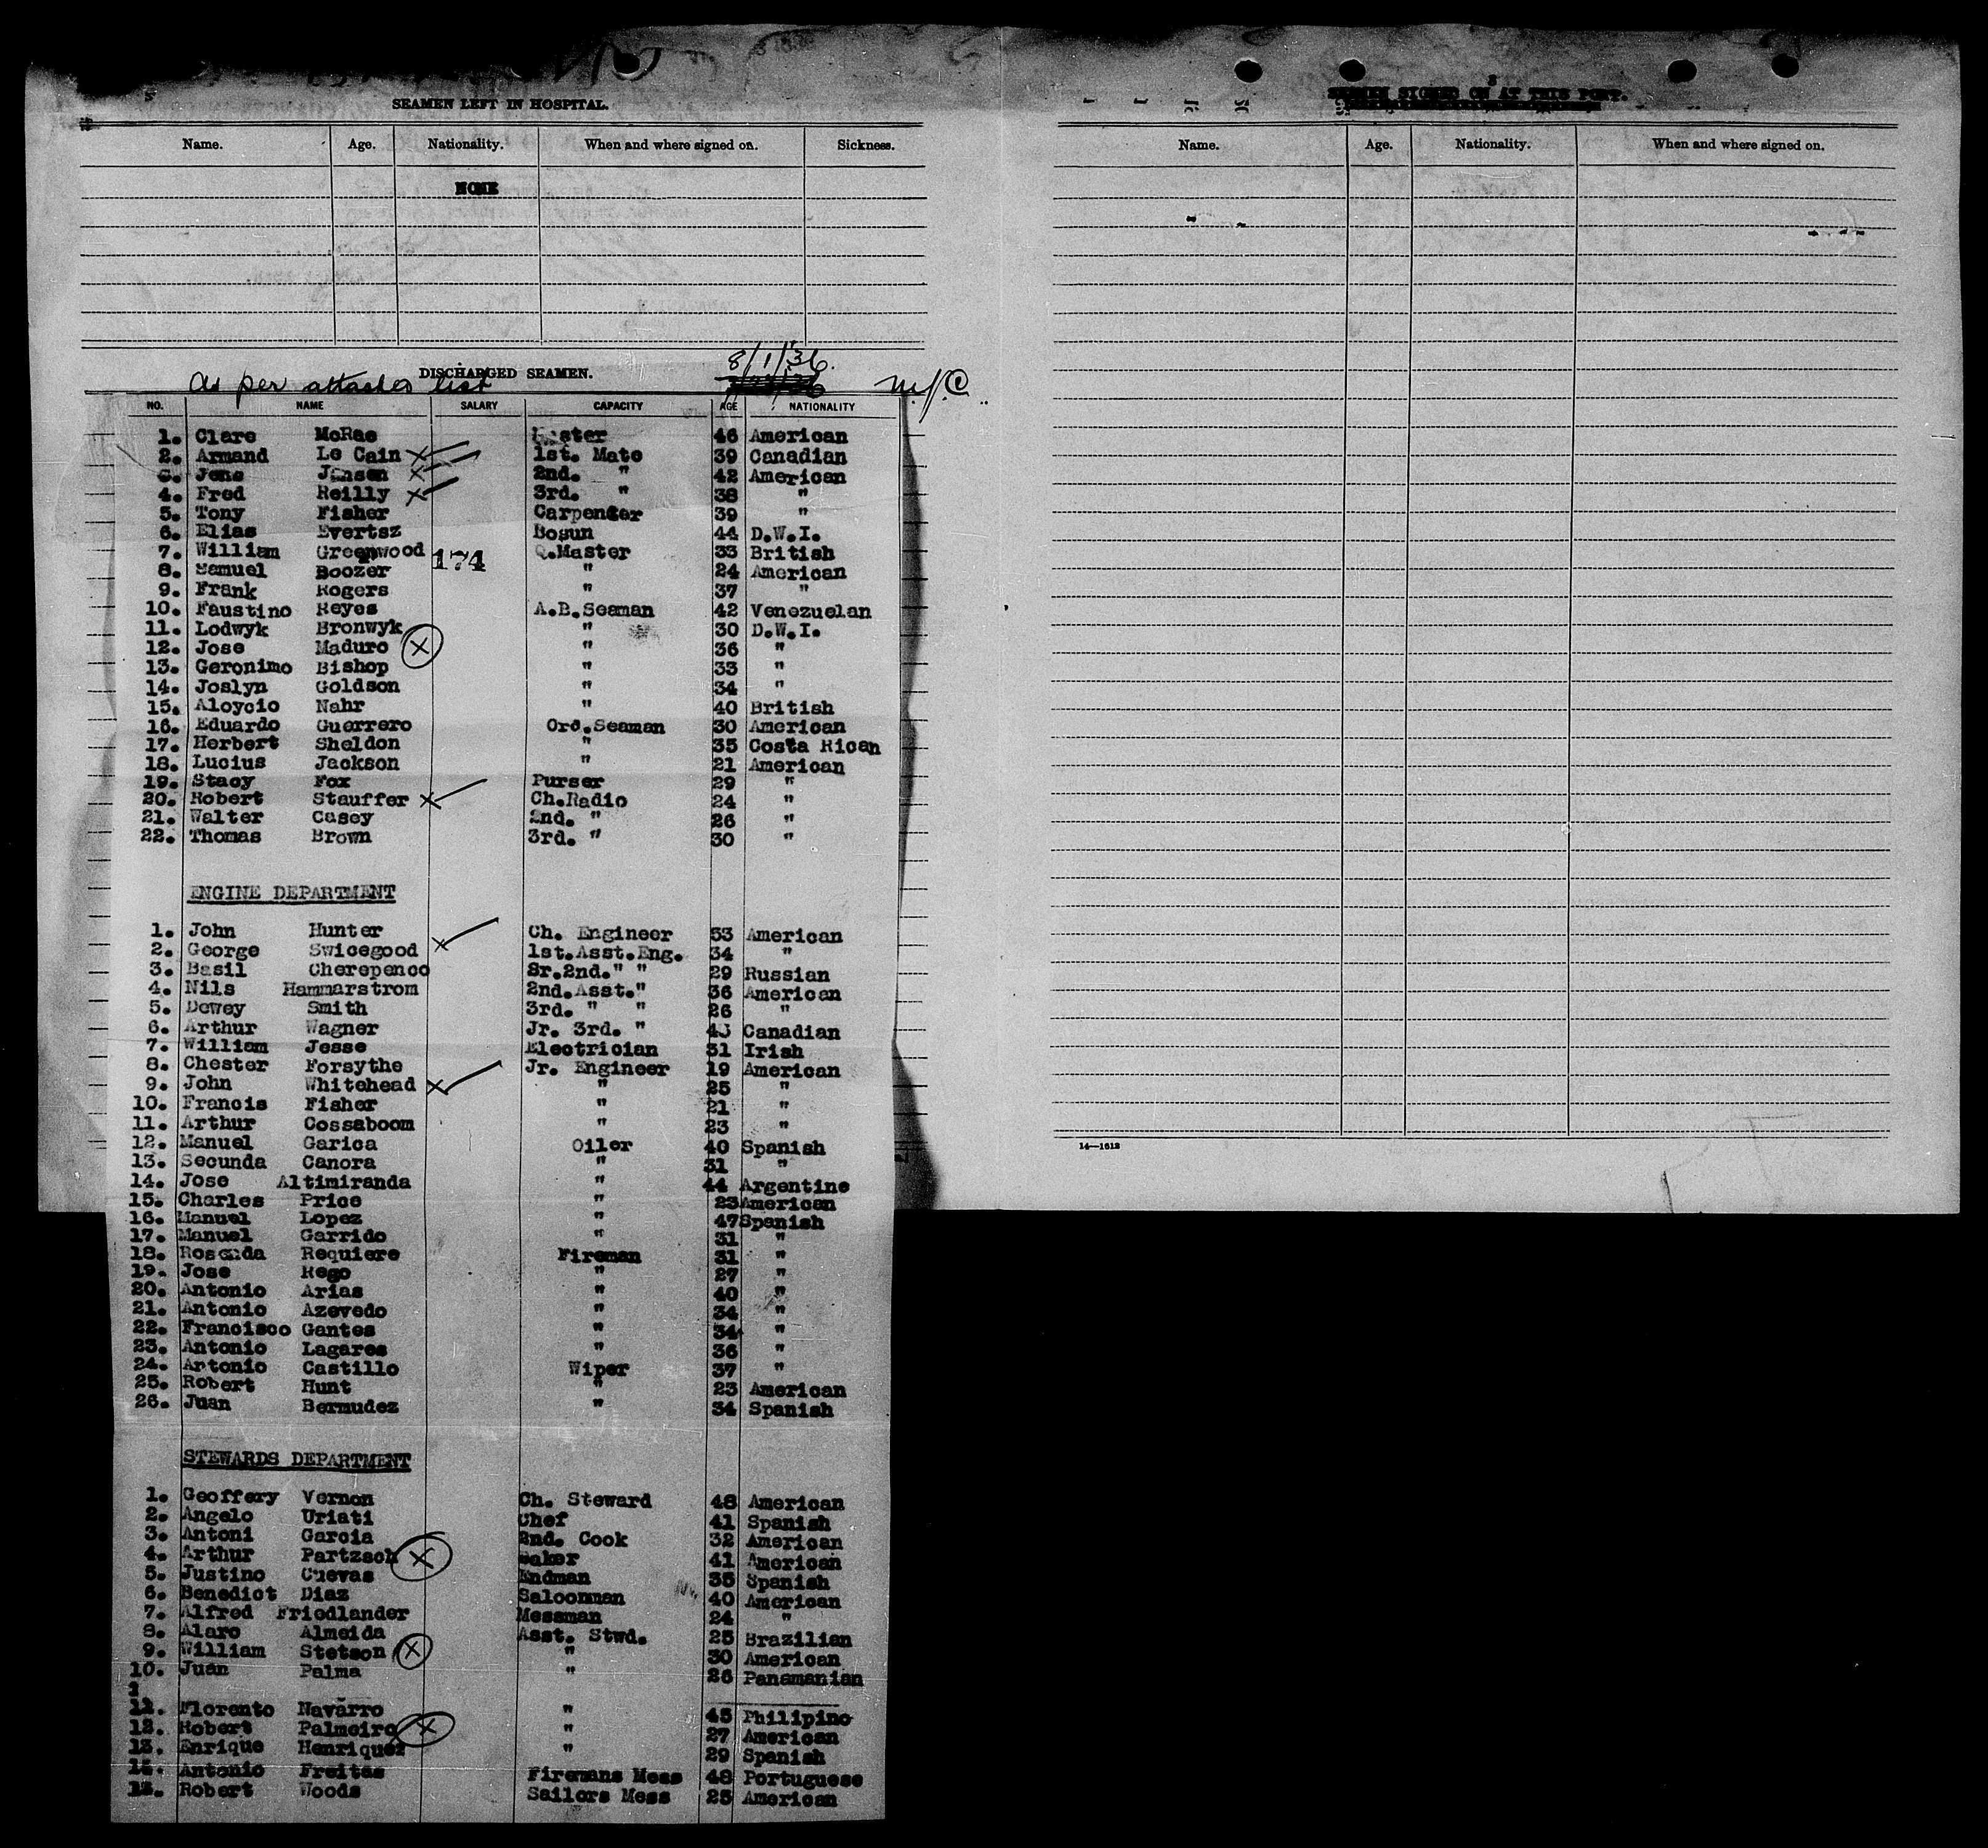 SEAMEN LEFT IN HOSPITAL.
Name. Age. Nationality. When and where signed on. Sickness.
NONE
DISCHARGED SEAMEN.
As per attached list
8/1/36.
NO. NAME SALARY CAPACITY AGE NATIONALITY
1. Clare McRae Master 46 American
2. Armand Le Cain X 1st. Mate 39 Canadian
3. Jens Jansen X 2nd. " 42 American
4. Fred Reilly X 3rd. " 38 "
5. Tony Fisher Carpenter 39 "
6. Elias Evertsz Bosun 44 D.W.I.
7. William Greenwood Q.Master 33 British
174
8. Samuel Boozer " 24 American
9. Frank Rogers " 37 "
10. Faustino Reyes A.B.Seaman 42 Venezuelan
11. Lodwyk Bronwyk " 30 D.W.I.
12. Jose Maduro X " 36 "
13. Geronimo Bishop " 33 "
14. Joslyn Goldson " 34 "
15. Aloycio Nahr " 40 British
16. Eduardo Guerrero Ord.Seaman 30 American
17. Herbert Sheldon " 35 Costa Rican
18. Lucius Jackson " 21 American
19. Stacy Fox Purser 29 "
20. Robert Stauffer X Ch.Radio 24 "
21. Walter Casey 2nd. " 26 "
22. Thomas Brown 3rd. " 30 "
ENGINE DEPARTMENT
1. John Hunter Ch. Engineer 53 American
2. George Swicegood X 1st.Asst.Eng. 34 "
3. Basil Cherepenco Sr.2nd." " 29 Russian
4. Nils Hammarstrom 2nd.Asst." 36 American
5. Dewey Smith 3rd. " " 26 "
6. Arthur Wagner Jr. 3rd. " Canadian
7. William Jesse Electrician 31 Irish
8. Chester Forsythe Jr. Engineer 19 American
9. John Whitehead X " 25 "
10. Francis Fisher " 21 "
11. Arthur Cossaboom " 23 "
12. Manuel Garica Oiler 40 Spanish
13. Secunda Canora " 31 "
14. Jose Altimiranda " 44 Argentine
15. Charles Price " 23 American
16. Manuel Lopez " 47 Spanish
17. Manuel Garrido " 31 "
18. Rosenda Requiere Fireman 31 "
19. Jose Rego " 27 "
20. Antonio Arias " 40 "
21. Antonio Azevedo " 34 "
22. Francisco Gantes " 34 "
23. Antonio Lagares " 36 "
24. Antonio Castillo Wiper 37 "
25. Robert Hunt " 23 American
26. Juan Bermudez " 34 Spanish
STEWARDS DEPARTMENT
1. Geoffery Vernon Ch. Steward 48 American
2. Angelo Uriati Chef 41 Spanish
3. Antoni Garcia 2nd. Cook 32 American
4. Arthur Partzsch X Baker 41 American
5. Justino Cuevas Endman 35 Spanish
6. Benedict Diaz Saloonman 40 American
7. Alfred Friedlander Messman 24 "
8. Alaro Almeida Asst. Stwd. 25 Brazilian
9. William Stetson X " 30 American
10. Juan Palma " 26 Panamanian
Florento Navarro " 45 Philipino
Robert Palmeiro X " 27 American
Enrique Henriquez " 29 Spanish
Antonio Freitas Firemans Mess 48 Portuguese
Robert Woods Sailors Mess 25 American
3
SEAMEN SIGNED ON AT THIS PORT.
Name. Age. Nationality. When and where signed on.
14—1612